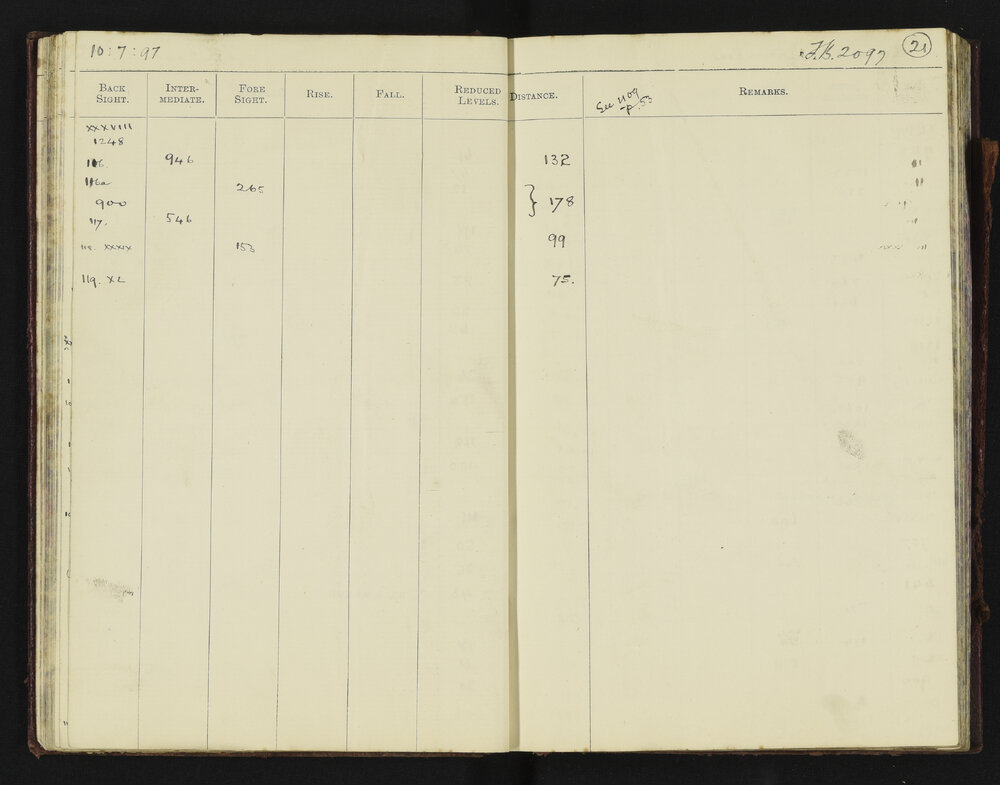 10:7:97
F.B. 2097 21
BACK SIGHT. INTER-MEDIATE. FORE SIGHT. RISE. FALL. REDUCED LEVELS. DISTANCE. REMARKS.
See 1109
p. 53
XXXVIII
1248
116. 946 132
116a 265
900 } 178
117. 546
118. XXXIX 153 99
119. XL 75.